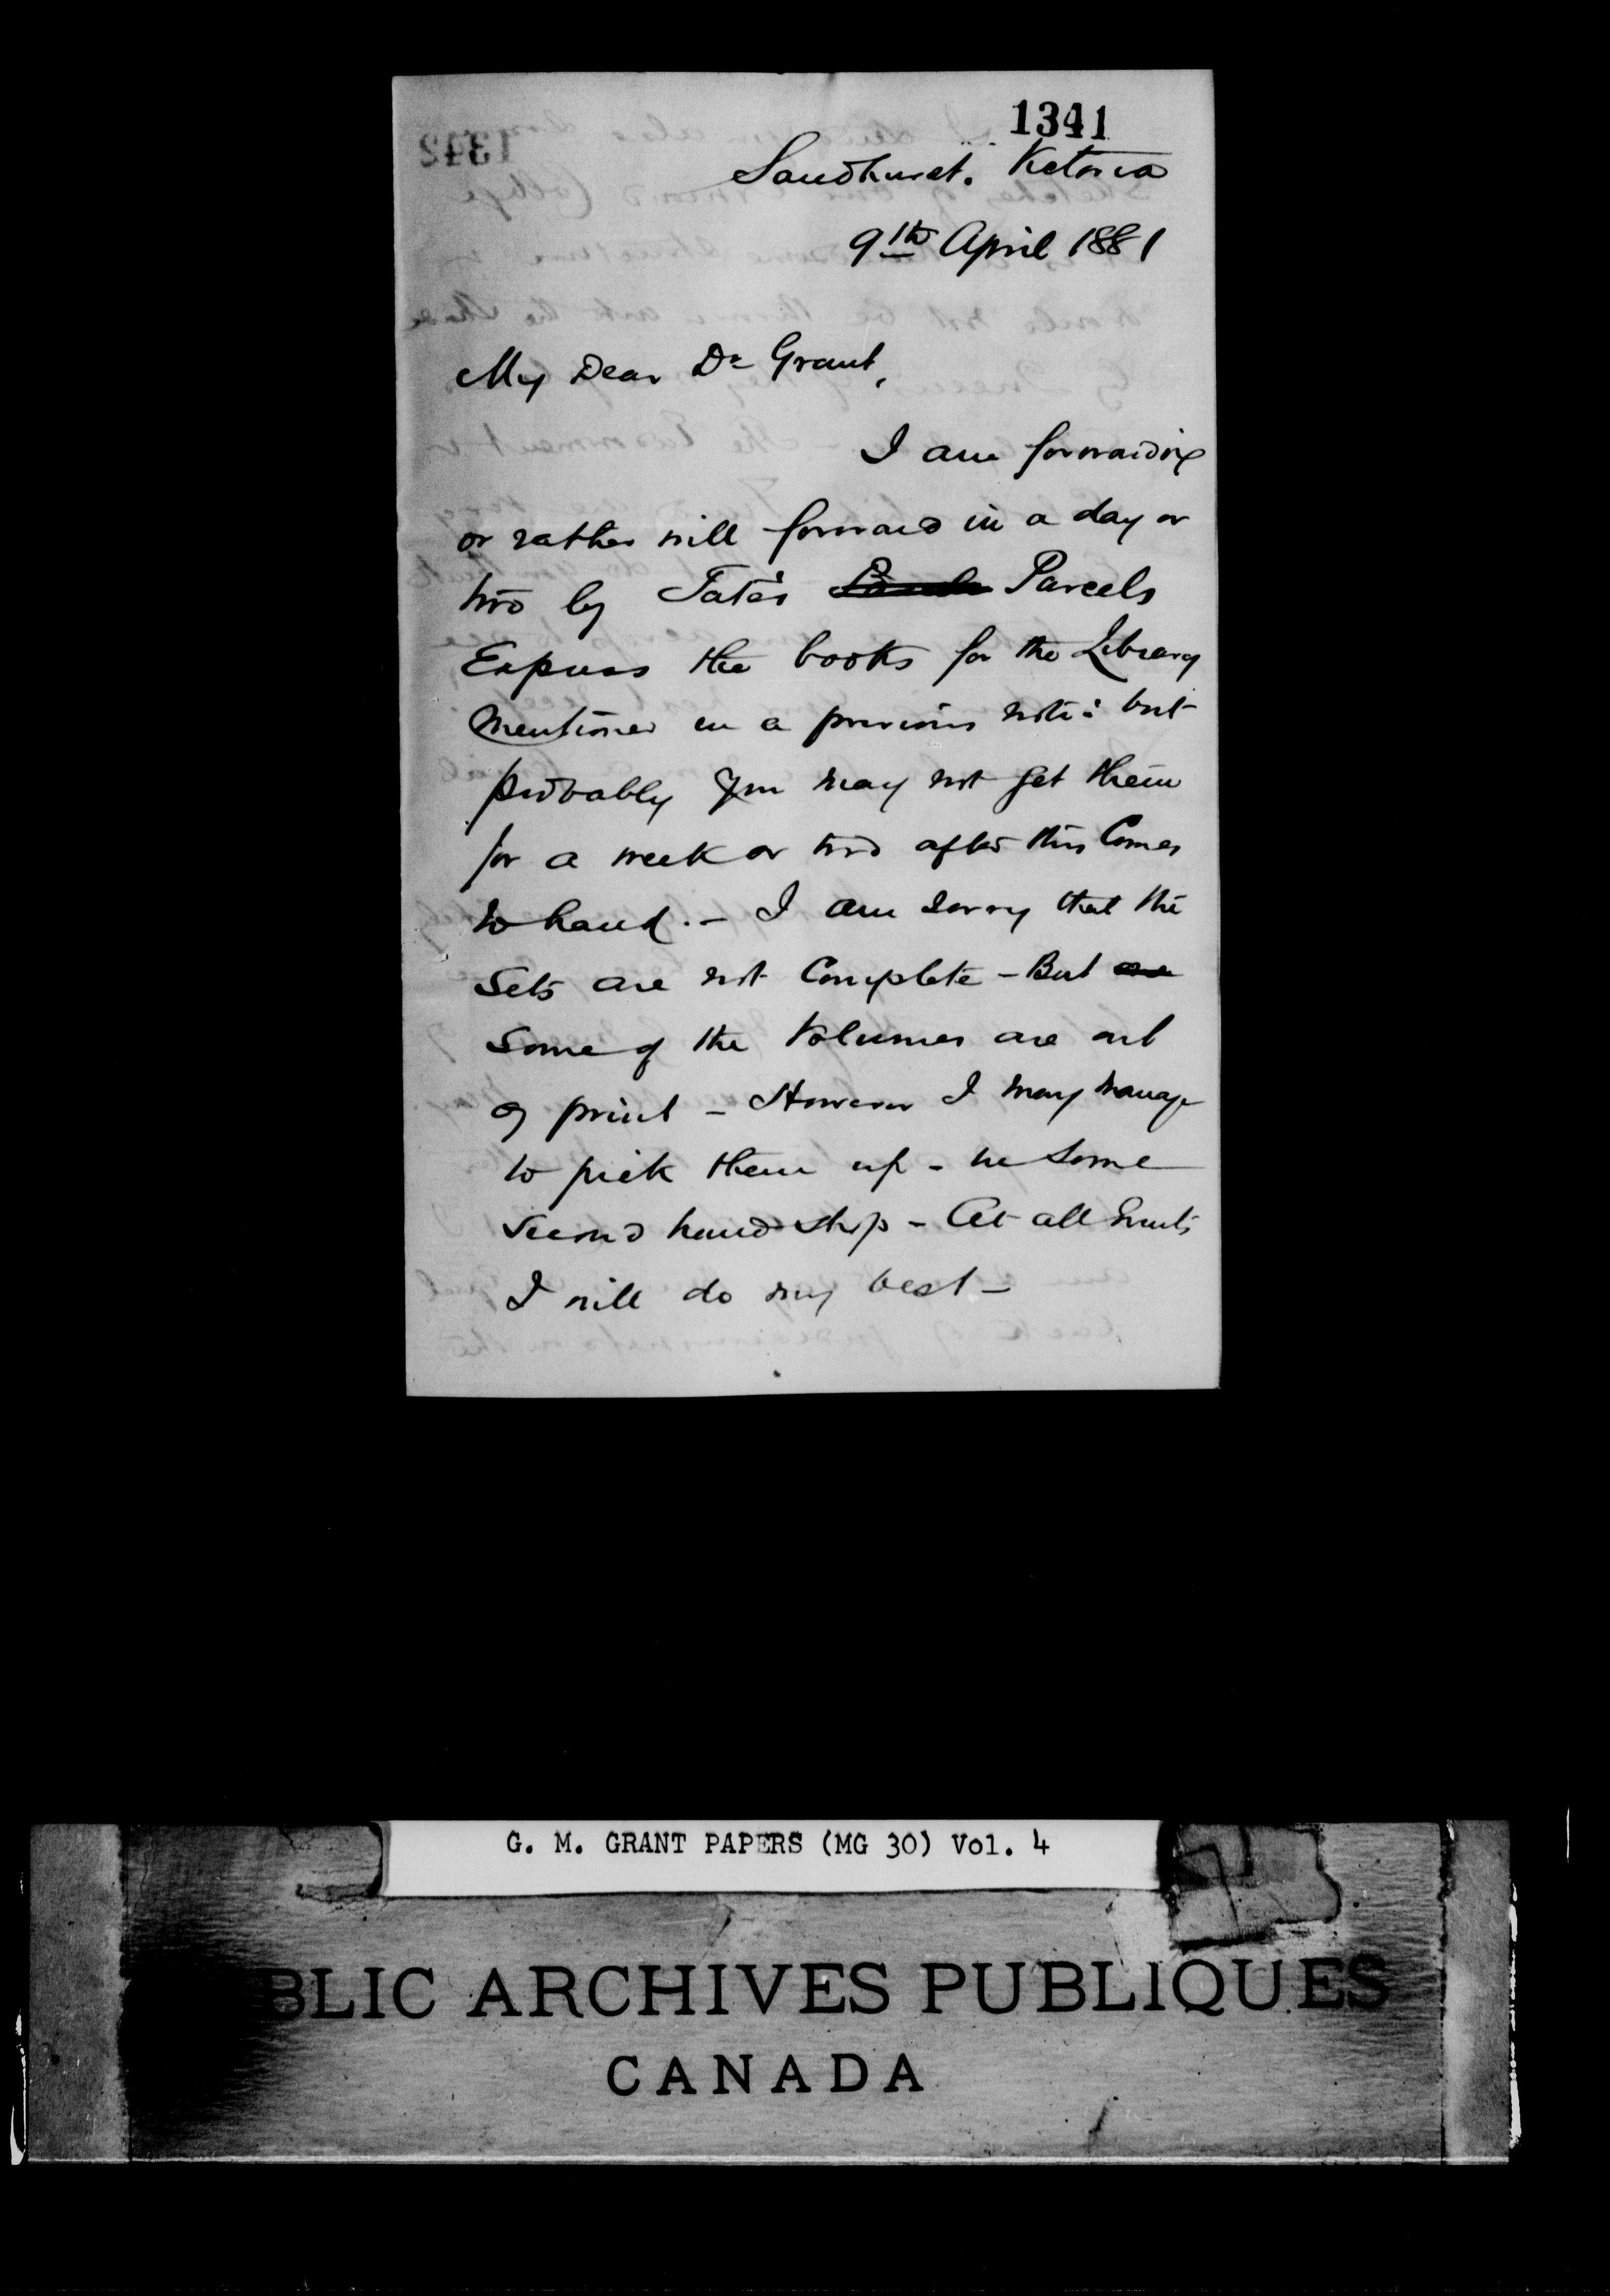 1341
Sandhurst. Victoria
9th April 1881
My Dear Dr Grant,
I am forwarding
or rather will forward in a day or
two by Tate's Parcels
Express the books for the Library
mentioned in a previous note: but
probably you may not get them
for a week or two after this Comes
to hand. - I am sorry that the
Sets are not Complete - But are
Some of the Volumes are out
of print - However I may manage
to pick them up - in Some
Second hand shop - At all Events
I will do my best -
G. M. GRANT PAPERS (MG 30) Vol. 4
BLIC ARCHIVES PUBLIQUES
CANADA